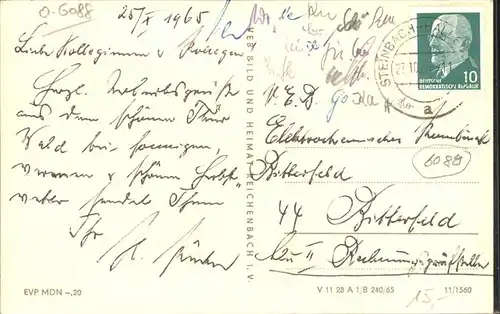 O-6088
25/X 1965
Liebe Kolleginnen u Kollegen
Herzl. Urlaubsgrüße
aus dem schönen Thür
Wald bei sonnigen,
warmen u schönen Herbst-
wetter sendet Ihnen
Ihr
EVP MDN -,20
VEB BILD UND HEIMAT REICHENBACH I. V.
STEINBACH
27.10
a
DEUTSCHE
DEMOKRATISCHE REPUBLIK
10
V.E.B.
Elektrochemisches Kombinat
6089
Bitterfeld
44 Bitterfeld
Bau II Rechnungsprüfstelle
V 11 28 A 1/B 240/65
11/1560
15,-